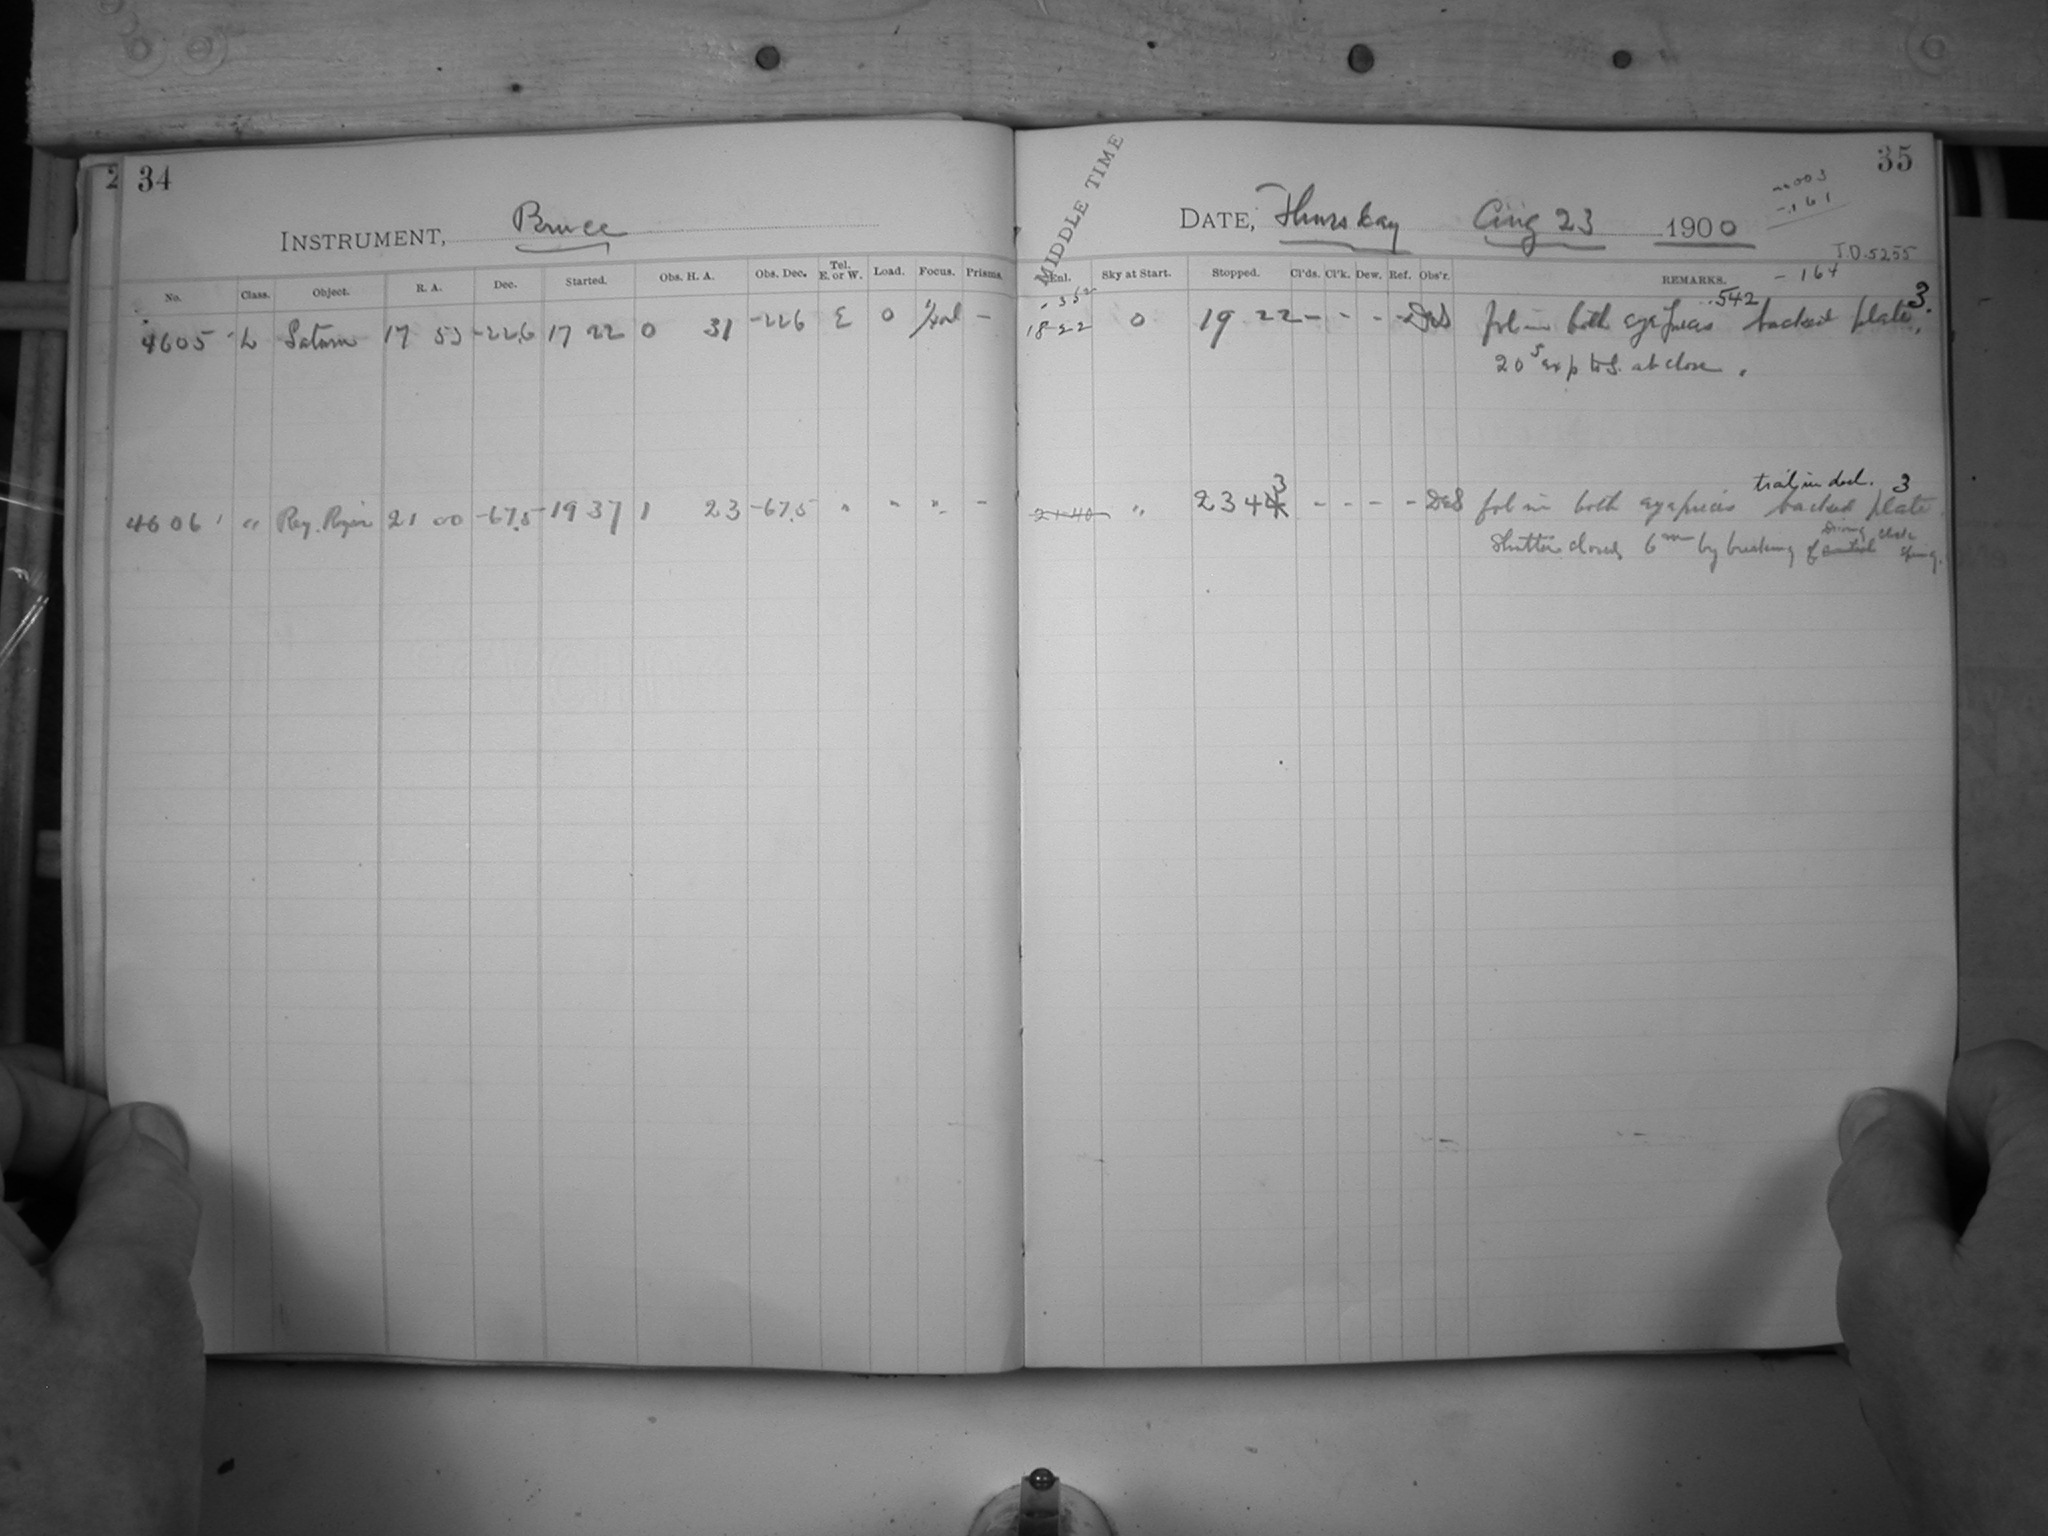 2 34
INSTRUMENT, Bruce
No. Class. Object. R. A. Dec. Started. Obs. H. A. Obs. Dec. Tel. E. or W. Load. Focus. Prisms.
4605 L Saturn 17 53 -22.6 17 22 0 31 -22.6 E 0 -
4606 " Reg. 21 00 -67.5 19 37 1 23 -67.5 " " " -
35
MIDDLE TIME
DATE, Thursday Aug 23 1900
-.161
J.D. 5255
-164
Enl. Sky at Start. Stopped. Cl'ds. Cl'k. Dew. Ref. Obs'r. REMARKS.
.542 3
18 22 0 19 22 - - - - DeS fol in both eyepieces backed plate.
20s exp to S. at close.
trails in decl. 3
21 40 " 23 44 3 - - - - DeS fol in both eyepieces backed plate.
Driving clock
Shutter closed 6m by breaking of spring.